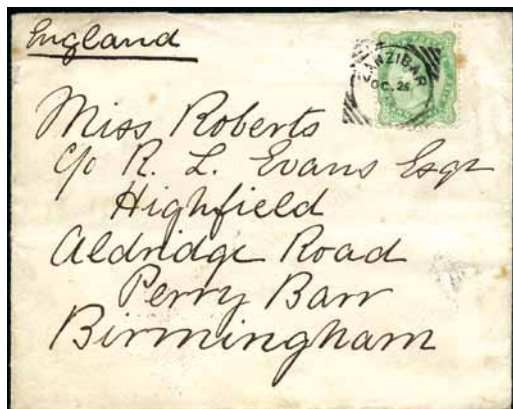 England
ZANZIBAR
OC. 25
Miss Roberts
c/o R. L. Evans Esqr
Highfield
Aldridge Road
Perry Barr
Birmingham